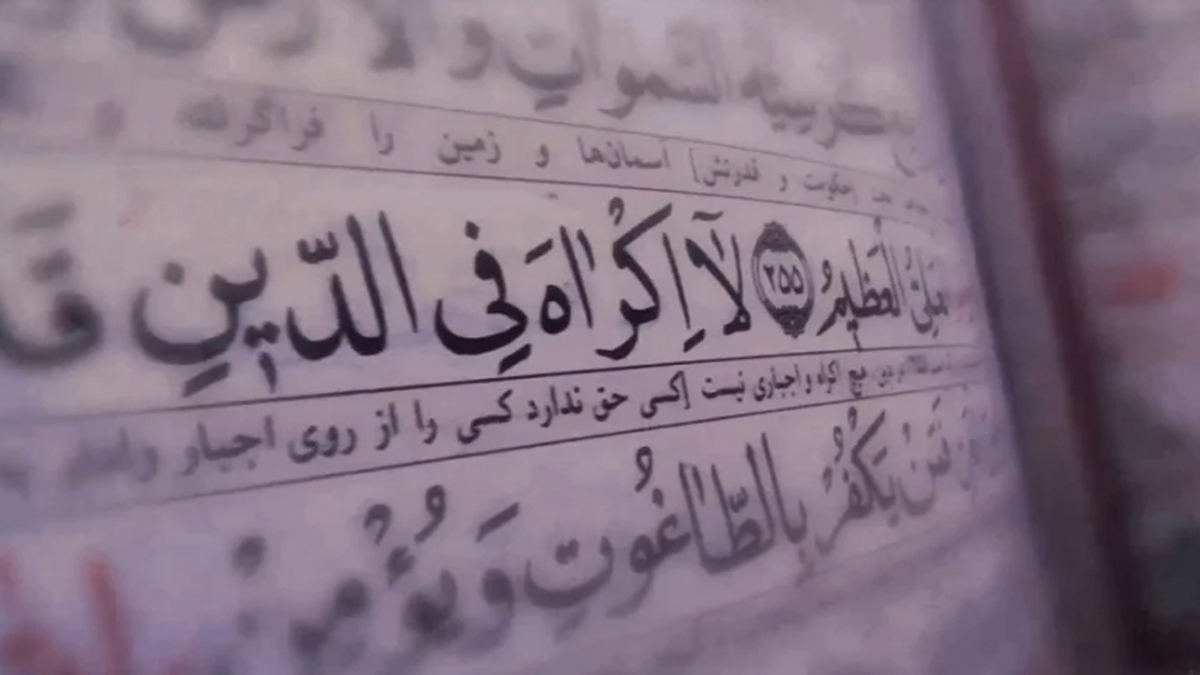 كُرْسِيُّهُ السَّمٰوَاتِ وَالْأَرْضَ
حکومت و قدرتش] آسمان‌ها و زمین را فراگرفته و
الْعَلِیُّ الْعَظِیمُ ۲۵۵ لَآ اِکْرَاهَ فِی الدِّینِ قَ
هیچ اکراه و اجباری نیست [کسی حق ندارد کسی را از روی اجبار
فَمَنْ یَکْفُرْ بِالطَّاغُوتِ وَ یُؤْمِنْ